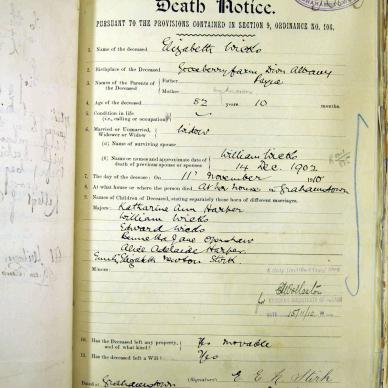 Death Notice.
PURSUANT TO THE PROVISIONS CONTAINED IN SECTION 9, ORDINANCE NO. 104.
1. Name of the deceased Elizabeth Wicks
2. Birthplace of the Deceased Gooseberry farm, Divn Albany
3. Names of the Parents of the Deceased
Father Payne
Mother
4. Age of the deceased 82 years 10 months.
5. Condition in life
(i.e., calling or occupation)
6. Married or Unmarried, Widower or Widow Widow
(a) Name of surviving spouse
(b) Name or names and approximate date of death of previous spouse or spouses William Wicks
14 Dec. 1902
7. The day of the decease: On 11th November 1910
8. At what house or where the person died At her house in Grahamstown
9. Names of Children of Deceased, stating separately those born of different marriages.
Majors: Katharine Ann Harper
William Wicks
Edward Wicks
Alice Adelaide Harper
Emily Elizabeth Newton Stirk
Minors:
DATE 15/11/10
10. Has the Deceased left any property, and of what kind? Yes movable
11. Has the deceased left a Will? Yes
Dated at Grahamstown (Signature) E. E. N. Stirk